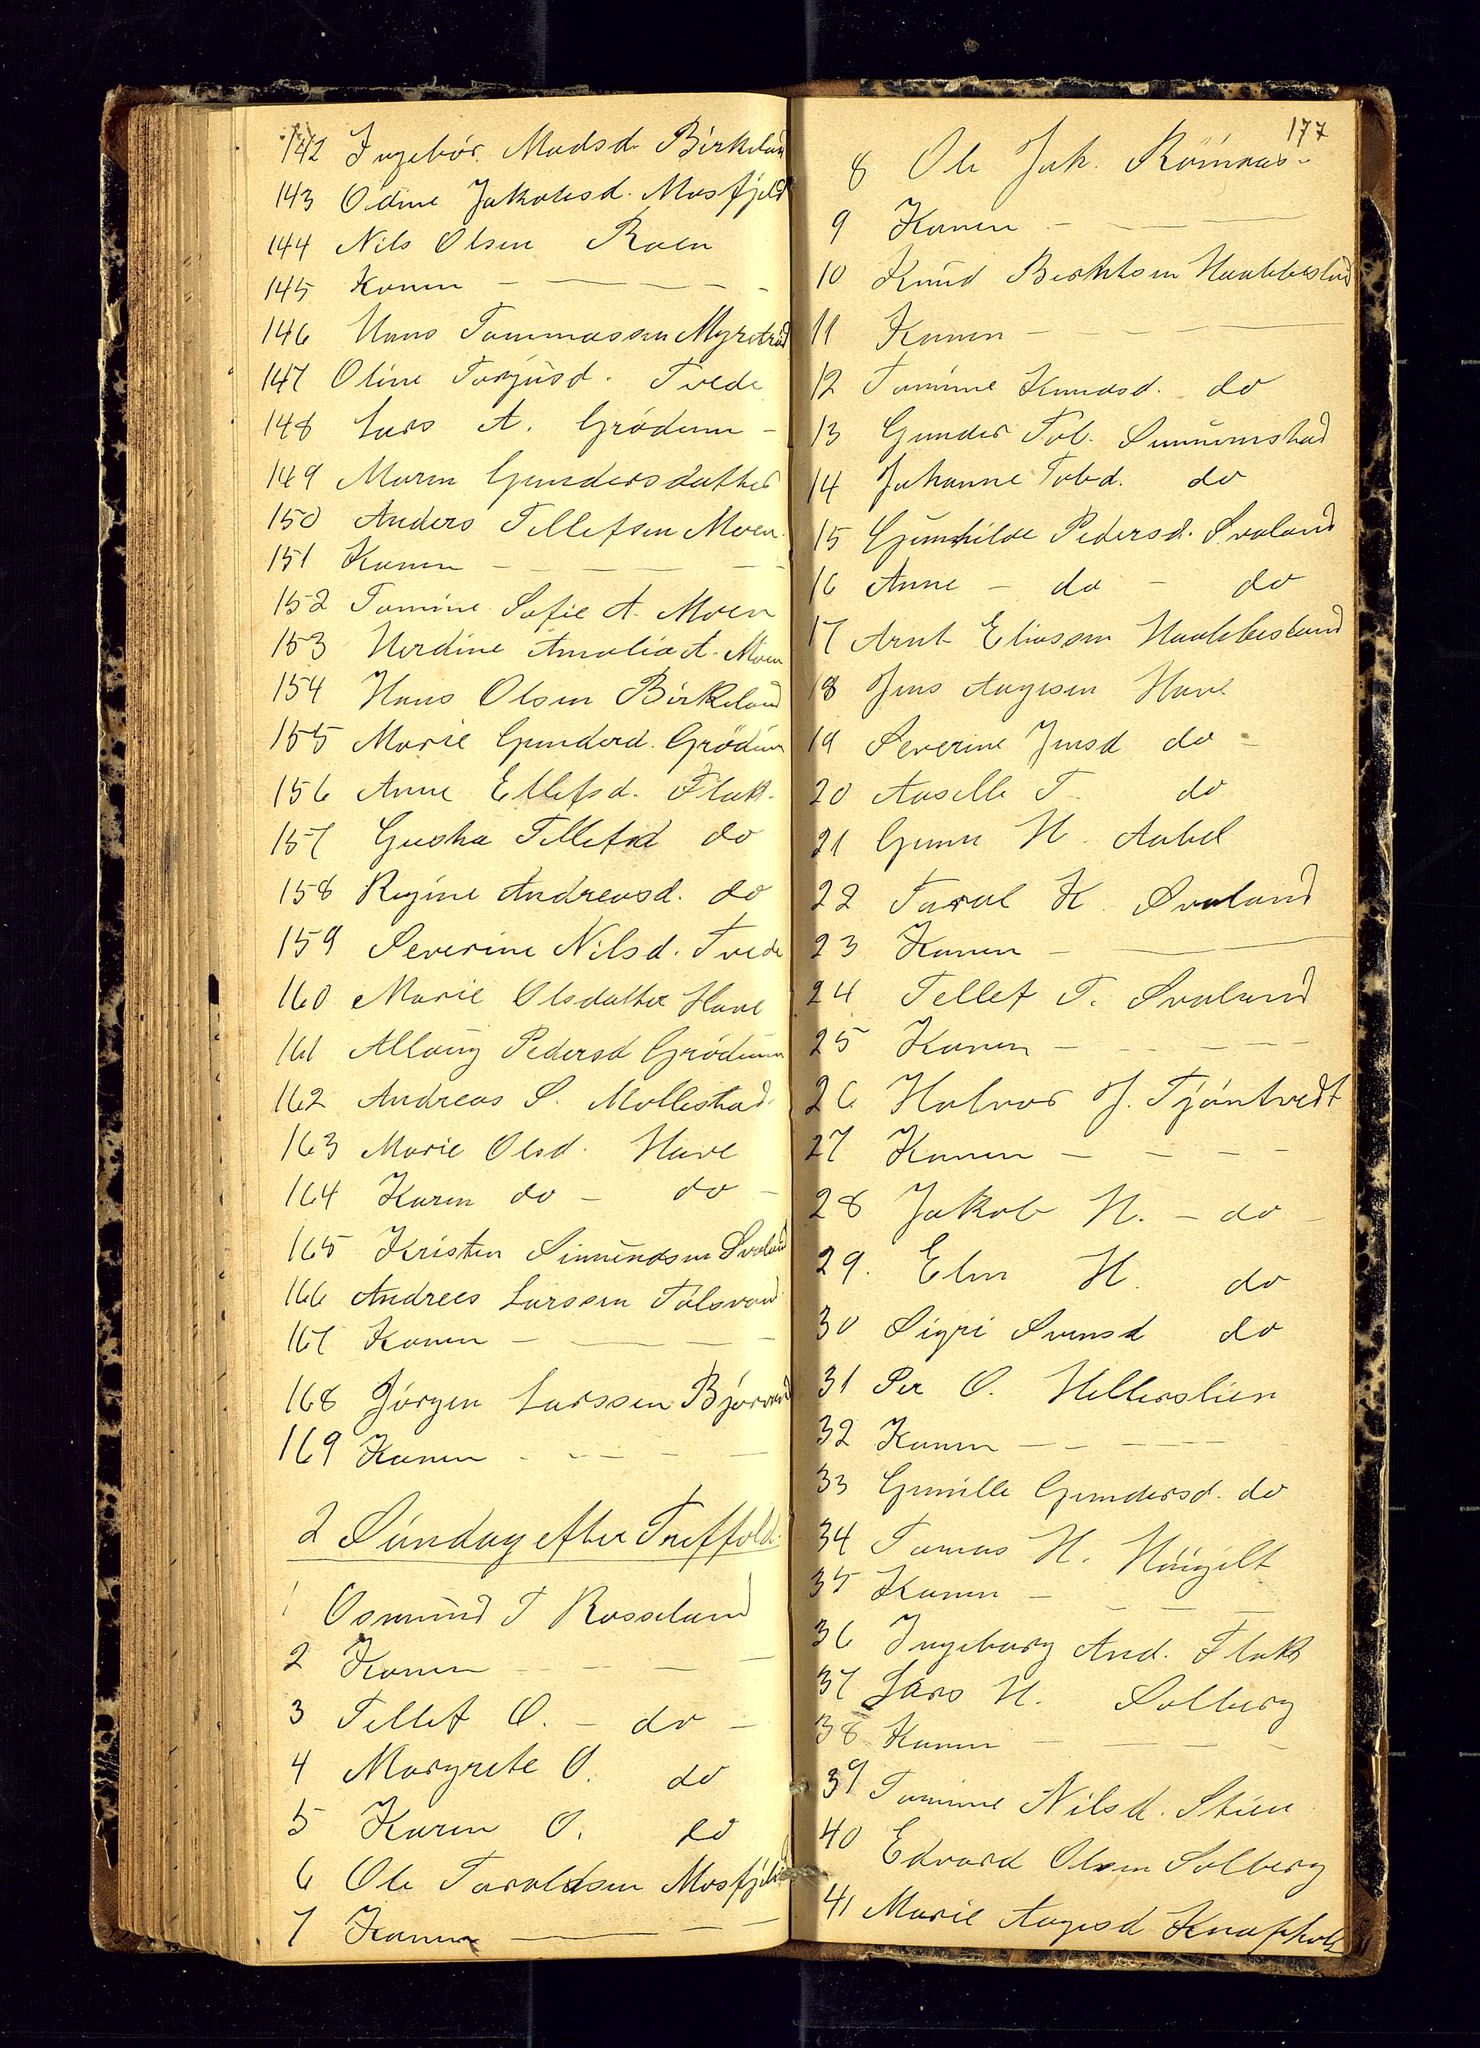 142 Ingebor. Madsd. Birkeland
143 Odine Jakobsd. Mosfjeld
144 Nils Olsen Roen
145 Konen - - - -
146 Hans Tommassen Myrstad
147 Oline Torjusd. Tvede
148 Lars A. Grödum -
149 Maren Gundersdatter
150 Anders Tellefsen Moen
151 Konen - - - -
152 Tomine Sofie A. Moen
153 Herdine Amalia A. Moen
154 Hans Olsen Birkeland
155 Marie Gunderd. Grödum
156 Anne Ellefsd. Flak.
157 Gusha Tellefsd do
158 Regine Andreasd. do
159 Severine Nilsd. Tvede
160 Marie Olsdatter Have
161 Allaug Pedersd Grödum
162 Andreas S. Mollestad
163 Marie Olsd. Have
164 Karen do - do -
165 Kristen Simundsen Svaland
166 Andrees Larssen Tolsvand
167 Konen - - -
168 Jörgen Larssen Björvand
169 Konen - - - -
2 Sunday efter Treffold.
1 Osmund T Rosseland
2 Konen - - - -
3 Tellef O. - do -
4 Margrete O. do
5 Karen O. do
6 Ole Taraldsen Mosfjeld
7 Konen - - -
177
8 Ole Jak. Römnas -
9 Konen - - -
10 Knud Berthsen Haabbesland
11 Konen - -
12 Tomine Knudsd. do
13 Gunder Tob. Simmonstad
14 Johanne Tobd. do
15 Gunhilde Pedersd. Svaland
16 Anne - do - do
17 Arnt Eliassen Haabbesland
18 Jens Aagesen Have
19 Severine Jensd do -
20 Aaselle T. do
21 Gunn H. Aabel
22 Taral K. Svaland
23 Konen - -
24 Tellef T. Svaland
25 Konen - - - -
26 Halvor J. Tjöntvedt
27 Konen - - - -
28 Jakob H. - do -
29. Elen H. do
30 Sigri Svensd do
31 Per O. Hellerslien
32 Konen - - - -
33 Gunille Gundersd. do
34 Tomas H. Höygilt
35 Konen - - - -
36 Ingeborg And. Flak
37 Lars H. Solberg
38 Konen - - - -
39 Tomine Nilsd. Stien
40 Edvard Olsen Solberg
41 Marie Aagesd